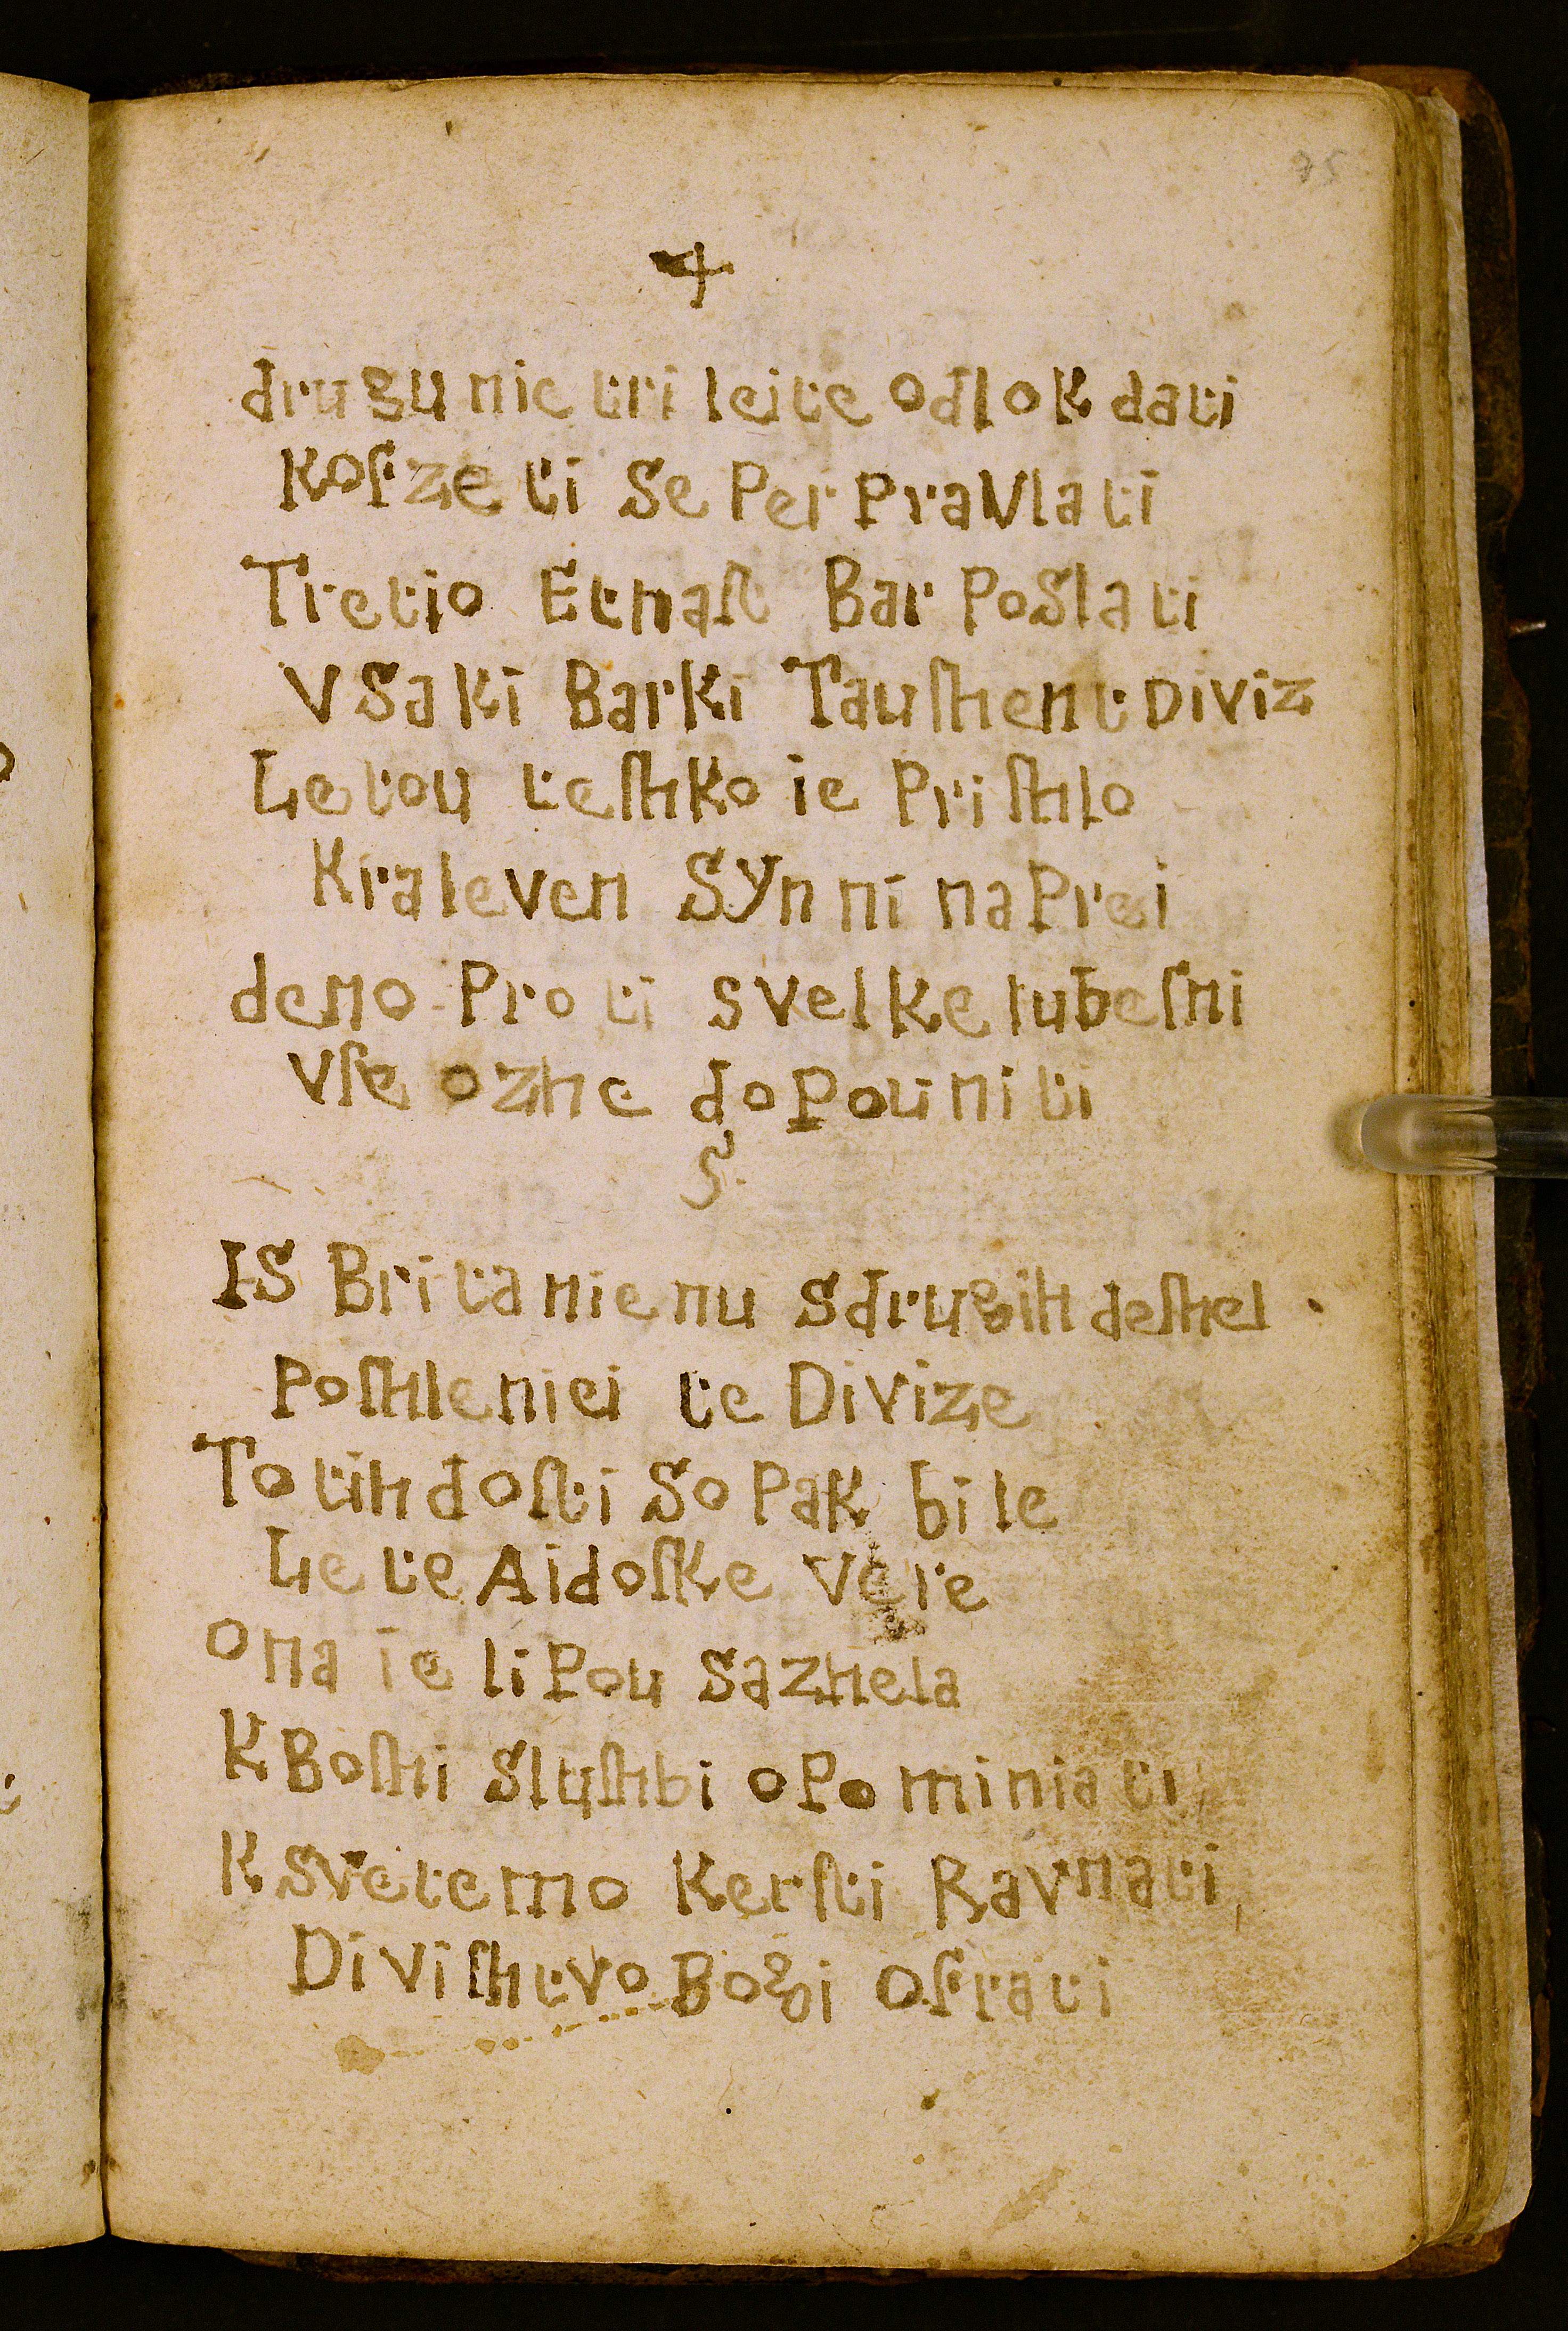 75
4
drugu nie tri leite odlok dati
Koſzeti Se Per PraVlati
Tretio Etnaſt Bar PoSlati
VSaki Barki Tauſhent DiViz
Letou teſhko ie Priſhlo
Kraleven SYnni naPrei
demo Proti sVelke lubeſni
Vſe ozhe doPouniti
5.
IS Britanienu Sdrugih deſhel
Poſhleniei te Divize
To tih doſti So Pak bile
Le te Aidoſke Vere
Ona ie liPou Sazhela
K Boſhi Sluſhbi oPominiati,
K SVetemo Kerſti Ravnati,
DiViſhtvo Bogi Oſrati